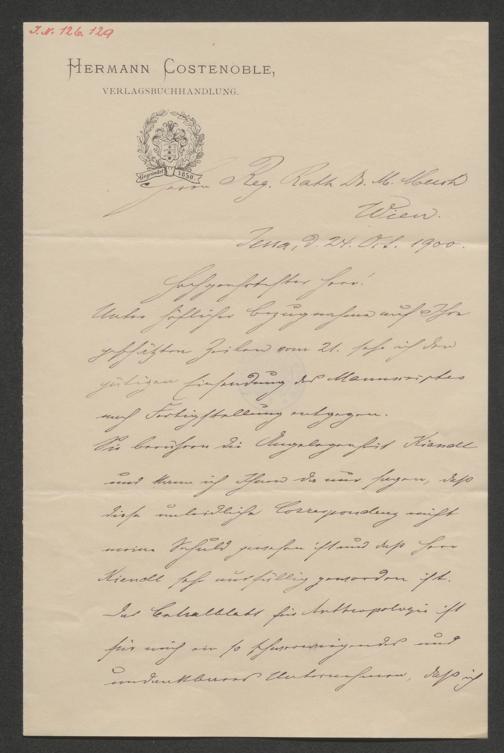 I.N. 126.129
HERMANN COSTENOBLE,
VERLAGSBUCHHANDLUNG.
Gegründet 1850
Herrn Reg. Rath Dr. M. Much
Wien.
Jena, d. 24. Oct. 1900.
Hochgeehrtester Herr!
Unter höflicher Bezugnahme auf Ihre
geschätzten Zeilen vom 21. sehe ich der
gütigen Einsendung des Manuscriptes
nach Fertigstellung entgegen.
Sie berühren die Angelegenheit Kiendl
und kann ich Ihnen da nur sagen, daß
diese unleidliche Correspondenz nicht
meine Schuld gewesen ist und daß Herr
Kiendl sehr ausfällig geworden ist.
Das Centralblatt für Anthropologie ist
für mich ein so schwerwiegendes und
undankbares Unternehmen, daß ich